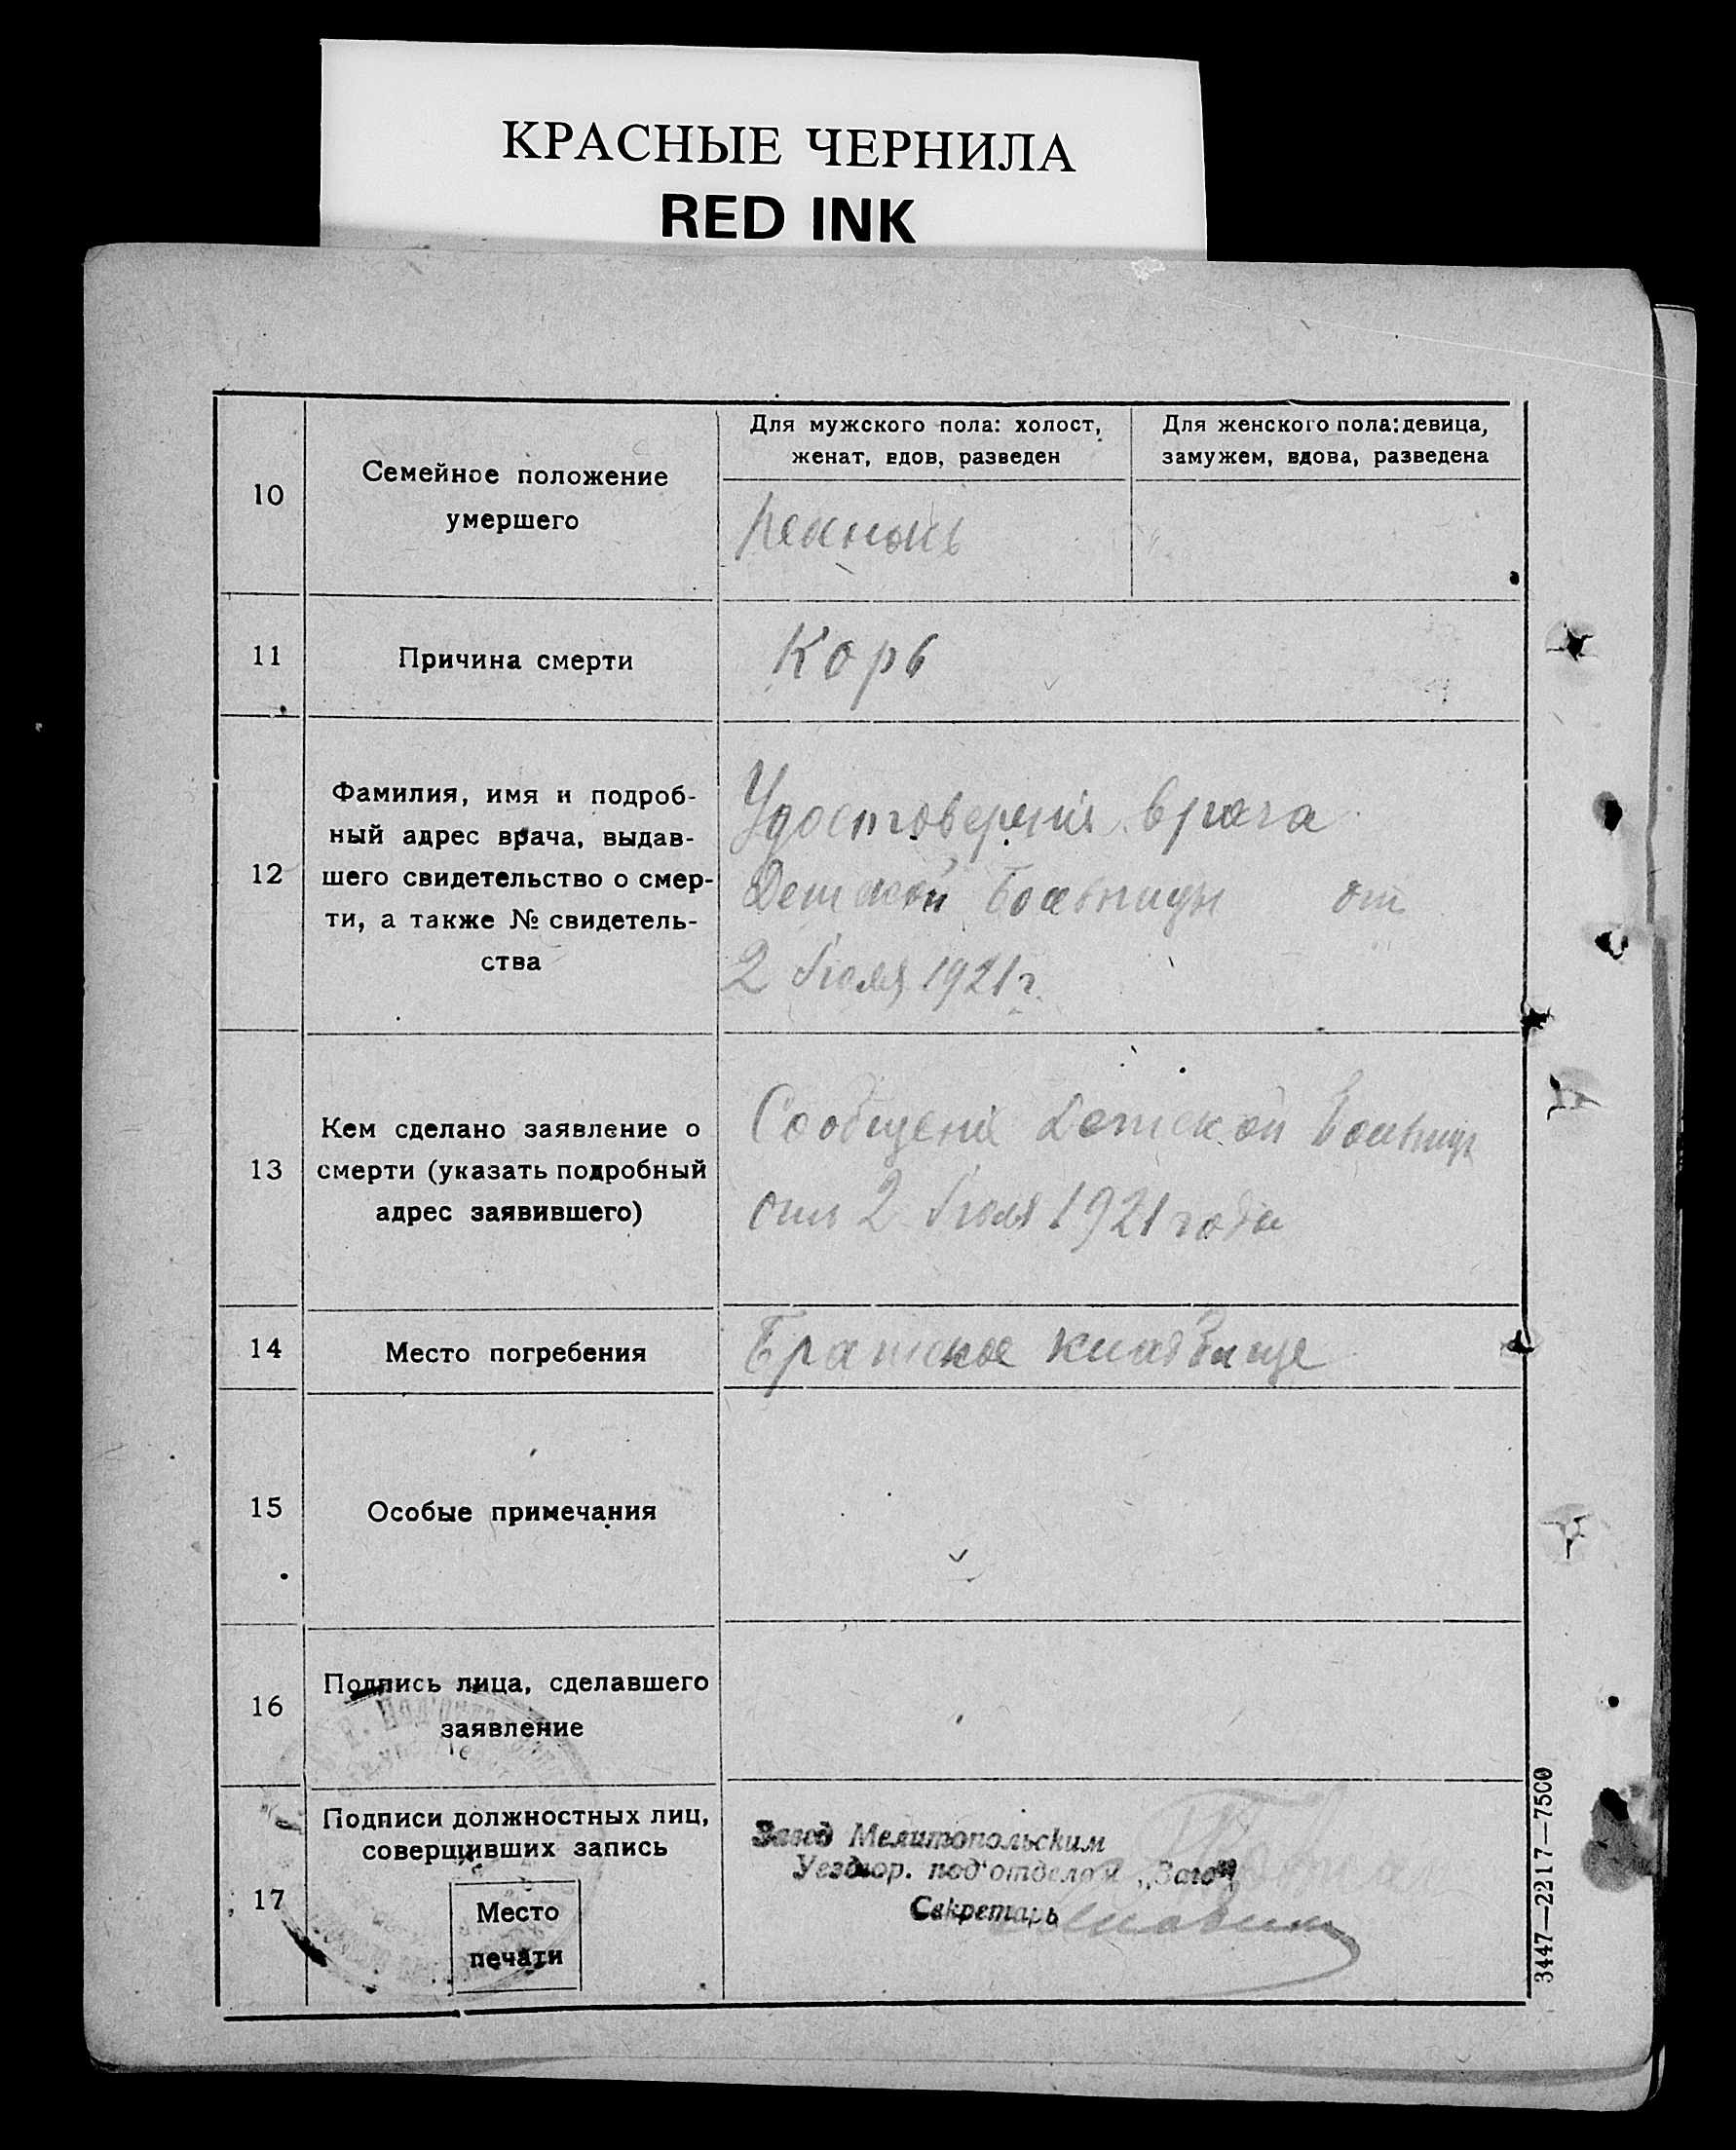 КРАСНЫЕ ЧЕРНИЛА
RED INK
10
Семейное положение
умершего
Для мужского пола: холост,
женат, вдов, разведен
Для женского пола: девица,
замужем, вдова, разведена
11
Причина смерти
Корь
12
Фамилия, имя и подроб-
ный адрес врача, выдав-
шего свидетельство о смер-
ти, а также № свидетель-
ства
Удостоверения врача
Детской Больницы от
2 Июля 1921 г.
13
Кем сделано заявление о
смерти (указать подробный
адрес заявившего)
Сообщения Детской Больницы
от 2 Июля 1921 года
14
Место погребения
Братское кладбище
15
Особые примечания
16
Подпись лица, сделавшего
заявление
17
Подписи должностных лиц,
соверщивших запись
Место
печати
Завед Мелитопольским
Уездгор. под'отделом „Загс"
Секретарь
3447—2217—7500